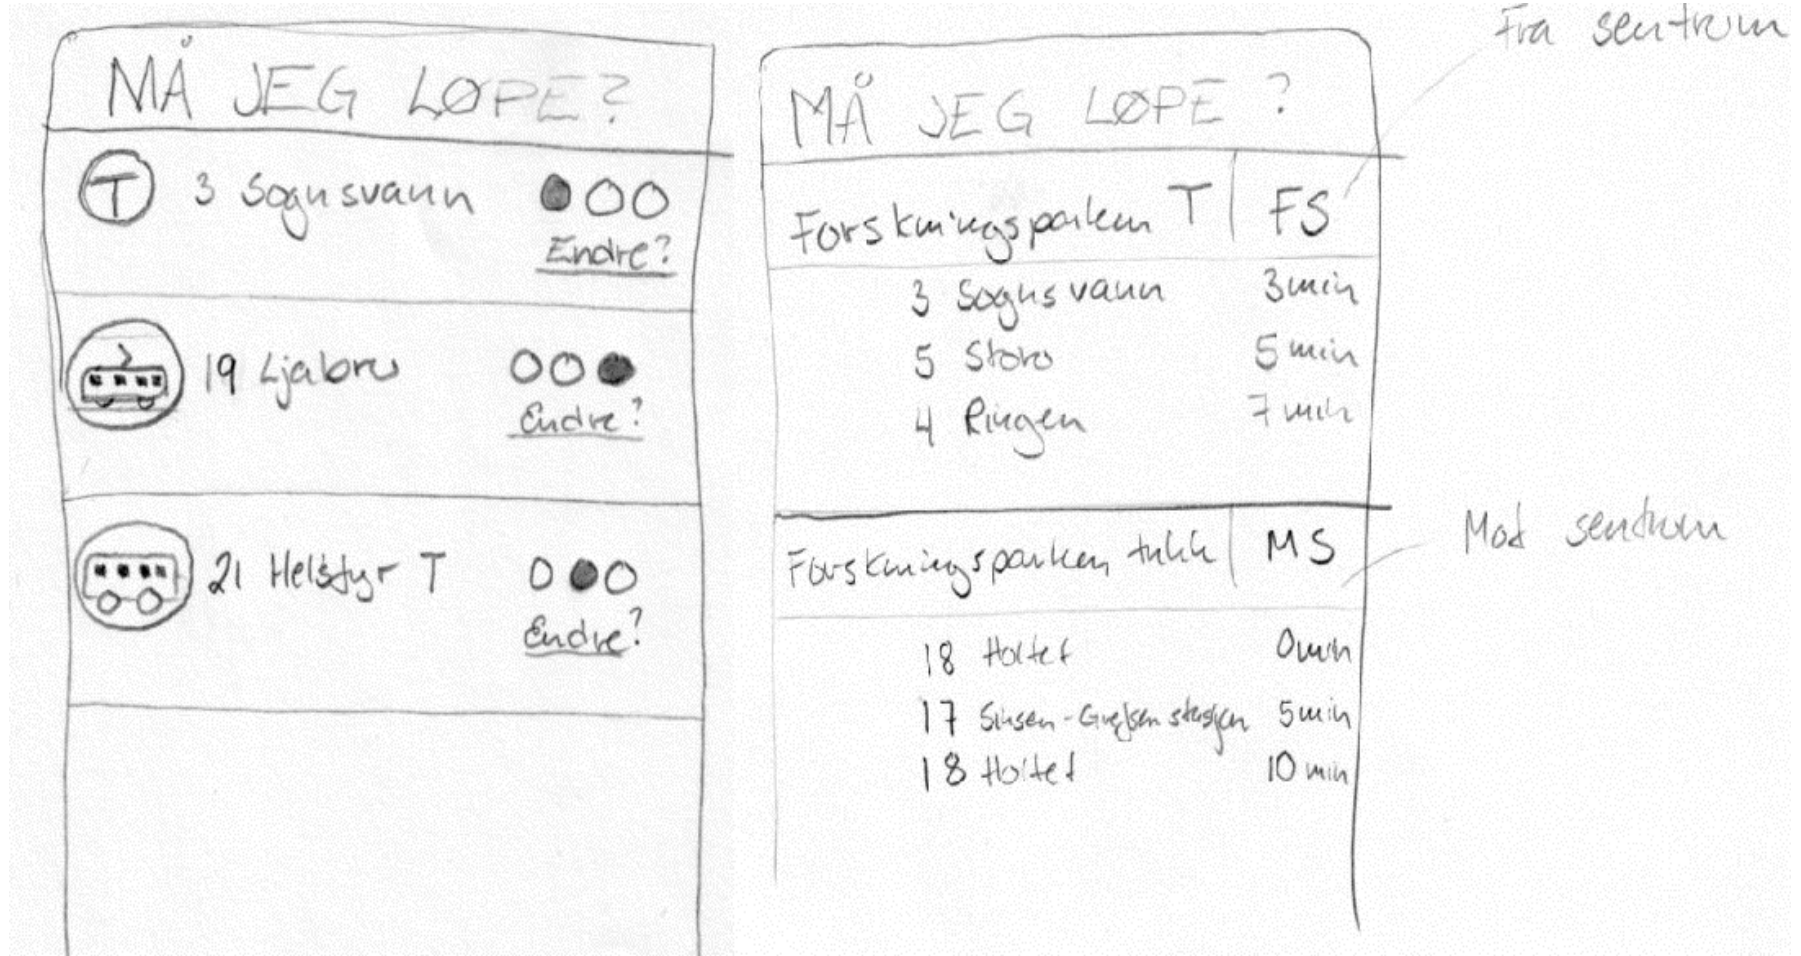 MÅ JEG LØPE?
T 3 Sognsvann
Endre?
19 Ljabru
Endre?
21 Helsfyr T
Endre?
Fra sentrum
MÅ JEG LØPE ?
Forskningsparken T FS
3 Sognsvann 3 min
5 Storo 5 min
4 Ringen 7 min
Mot sentrum
Forskningsparken trikk MS
18 Holtet 0 min
17 Sinsen-Grefsen stasjon 5 min
18 Holtet 10 min